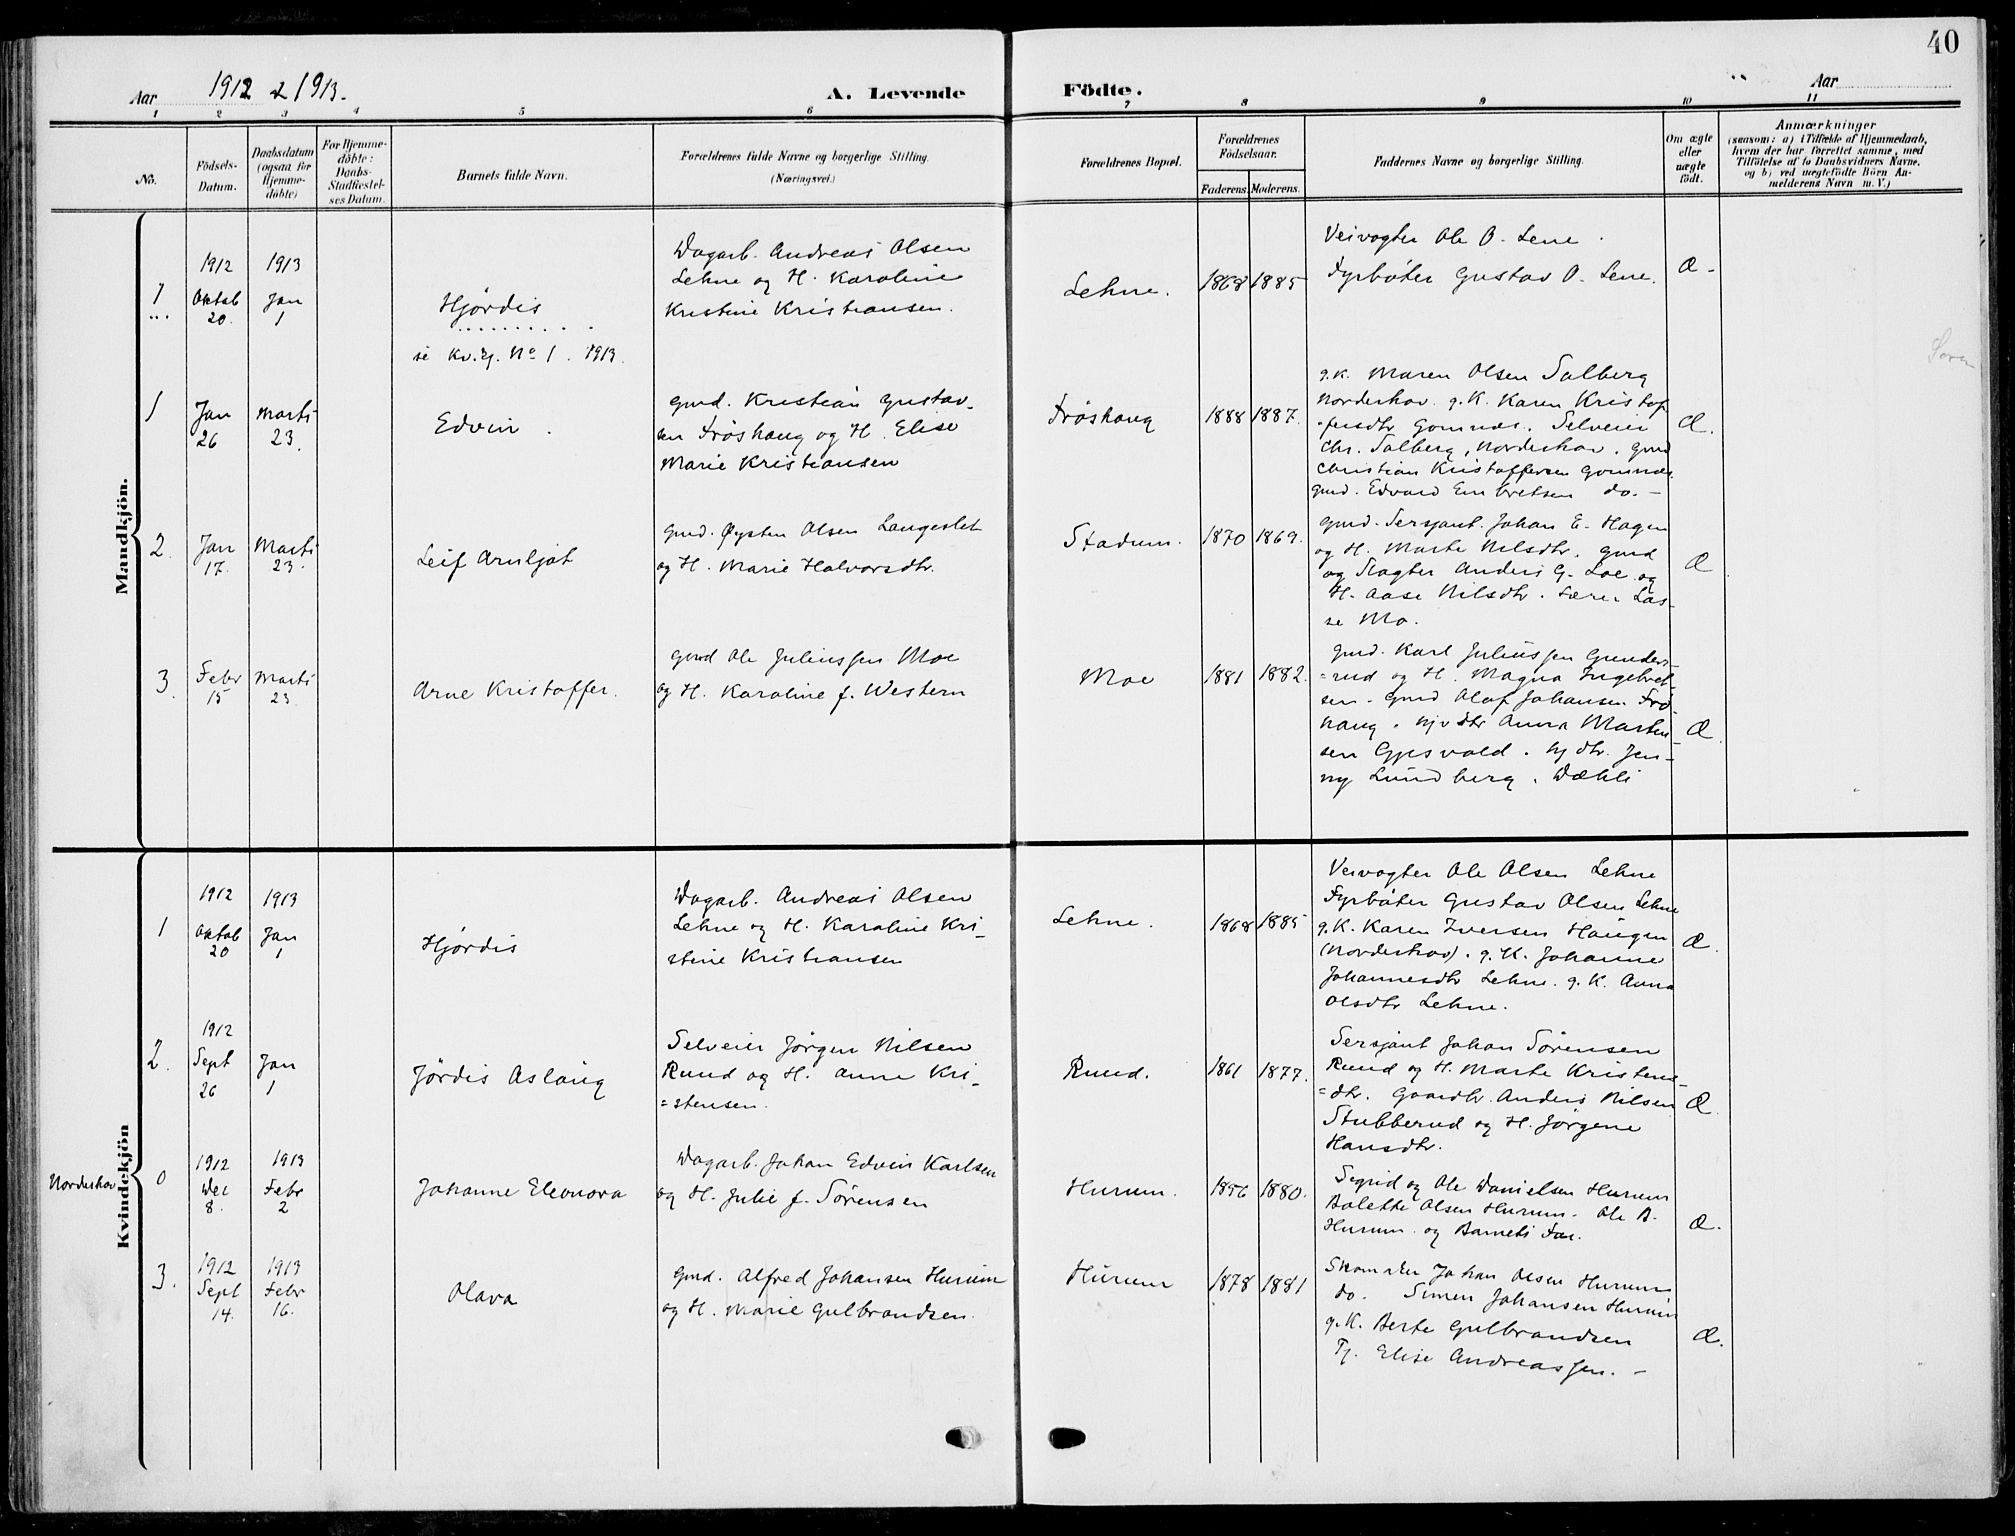 40
Aar 1912 & 1913.
A. Levende
Födte.
Aar
1 2 3 4 5 6 7 8 9 10 11
No.
Födsels-
Datum.
Daabsdatum
(ogsaa for
Hjemme-
döbte)
For Hjemme-
döbte:
Daabs-
Stadfæstel-
ses Datum.
Barnets fulde Navn.
Forældrenes fulde Navne og borgerlige Stilling.
(Næringsvei.)
Forældrenes Bopæl.
Forældrenes
Födselsaar.
Faderens.
Moderens.
Faddernes Navne og borgerlige Stilling.
Om ægte
eller
uægte
födt.
Anmærkninger
(saasom: a) i Tilfælde af Hjemmedaab,
hvem der har forrettet samme, med
Tilföielse af to Daabsvidners Navne,
og b) ved uægtefödte Börn An-
melderens Navn m. V.)
Mandkjön.
1
1912
Oktob
20.
1913
Jan
1
Hjördis
se Kv.kj. No 1. 1913.
Dagarb. Andreas Olsen
Lehne og H. Karoline
Kristine Kristiansen.
Lehne.
1868
1885
Veivogter Ole O. Lene.
Fyrböter Gustav O. Lene.
Æ.
1
Jan
26
Marts
23.
Edvin.
Gmd. Kristian Gustav-
sen Fröshaug og H. Elise
Marie Kristiansen
Fröshaug
1888
1887.
g.K. Maren Olsen Salberg
Norderhov. g.K. Karen Kristof
fersdtr Gomnæs. Selveier
Chr. Salberg, Norderhov. Gmd
Christian Kristoffersen Gomnæs.
Gmd. Edvard Embretsen do. -
Æ.
2.
Jan
17.
Marts
23.
Leif Arnljot
Gmd. Øysten Olsen Langeslet
og H. Marie Halvorsdtr.
Stadum.
1870
1869.
Gmd. Sersjant Johan E. Hagen
og H. Marte Nilsdtr. Gmd
og Slagter Anders G. Loe og
H. Aase Nilsdtr. Lærer Las-
se Mo.
Æ
3.
Febr
15
Marts
23.
Arne Kristoffer.
Gmd Ole Juliussen Moe
og H. Karoline f. Western
Moe
1881
1882.
Gmd. Karl Juliussen Gunders-
=rud og H. Magna Ingebret-
sen. Gmd Olaf Johansen Frö
haug. Anna Martin-
sen Gjesvold. Jen-
ny Lundberg. Dæhli
Æ.
Kvindekjön
1
1912
Oktob
20
1913
Jan
1
Hjördis
Dagarb. Andreas Olsen
Lehne og H. Karoline Kri-
stine Kristiansen
Lehne.
1868
1885
Veivogter Ole Olsen Lehne
Fyrböter Gustav Olsen Lehne
g.K. Karen Iversen Haugen
(Norderhov). g.K. Johanne
Johannesdtr Lehne. g.K. Anna
Olsdtr Lehne.
Æ.
2.
1912
Sept
26
Jan
1
Jördis Aslaug
Selveier Jörgen Nilsen
Ruud og H. Anne Kri-
=stensen.
Ruud.
1861
1877.
Sersjant Johan Sörensen
Ruud og H. Marte Kristens-
=dtr. Gaardbr. Anders Nilsen
Stubberud og H. Jörgene
Hansdtr.
Æ.
Norderhov
0
1912
Dec
8.
1913
Febr
2
Johanne Eleonora
Dagarb. Johan Edvin Karlsen
og H. Julie f. Sörensen
Hurum.
1856
1880.
Sigrid og Ole Danielsen Hurum
Bolette Olsen Hurum. Ole B.
Hurum. og Barnets Far.
Æ.
3.
1912
Sept
14.
1913
Febr
16.
Olava
Gmd. Alfred Johansen Hurum
og H. Marie Gulbrandsen.
Hurum
1878
1881
Skomaker Johan Olsen Hurum
do. Simen Johansen Hurum
g.K. Berte Gulbrandsen
Pj. Elise Andreassen. -
Æ.